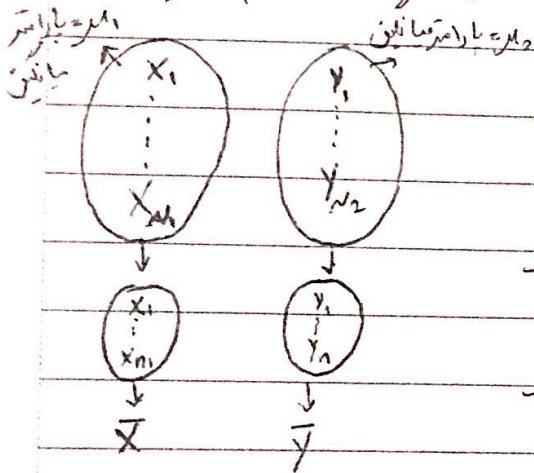 μ₁ = پارامتر
میانگین
μ₂ = پارامتر میانگین
X₁ Y₁
X_N₁ Y_N₂
x₁ y₁
x_n₁ y_n
X̄ Ȳ